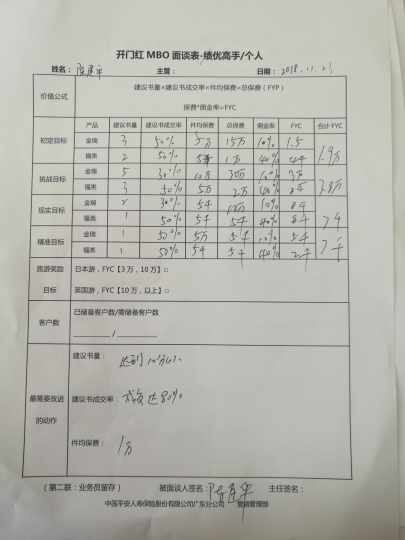 开门红 MBO 面谈表-绩优高手/个人
姓名： 陈建平 主管： 日期： 2018.11.23
价值公式 建议书量×建议书成交率×件均保费=总保费（FYP）
保费*佣金率=FYC
产品 建议书量 建议书成交率 件均保费 总保费 佣金率 FYC 合计 FYC
初定目标 金瑞 3 50% 5万 15万 10% 1.5 1.9万
福类 2 50% 5千 1万 40% 4千
挑战目标 金瑞 5 30% 10万 30万 10% 3万 3.8万
福类 3 50% 5万 2万 40% 8千
现实目标 金瑞 2 30% 5千 10万 10% 8千
福类 1 50% 5千 5千 40% 8千
精准目标 金瑞 1 50% 5万 5千 10% 5千 7千
福类 1 50% 5千 5千 40% 2千
旅游奖励目标 日本游，FYC【3万，10万】□
英国游，FYC【10万，以上】□
客户数 已储备客户数/需储备客户数
/
最需要改进的动作 建议书量： 达到
建议书成交率： 达80%
件均保费： 1万
（第二联：业务员留存） 被面谈人签名： 陈建平 主任签名：
中国平安人寿保险股份有限公司广东分公司 营销管理部